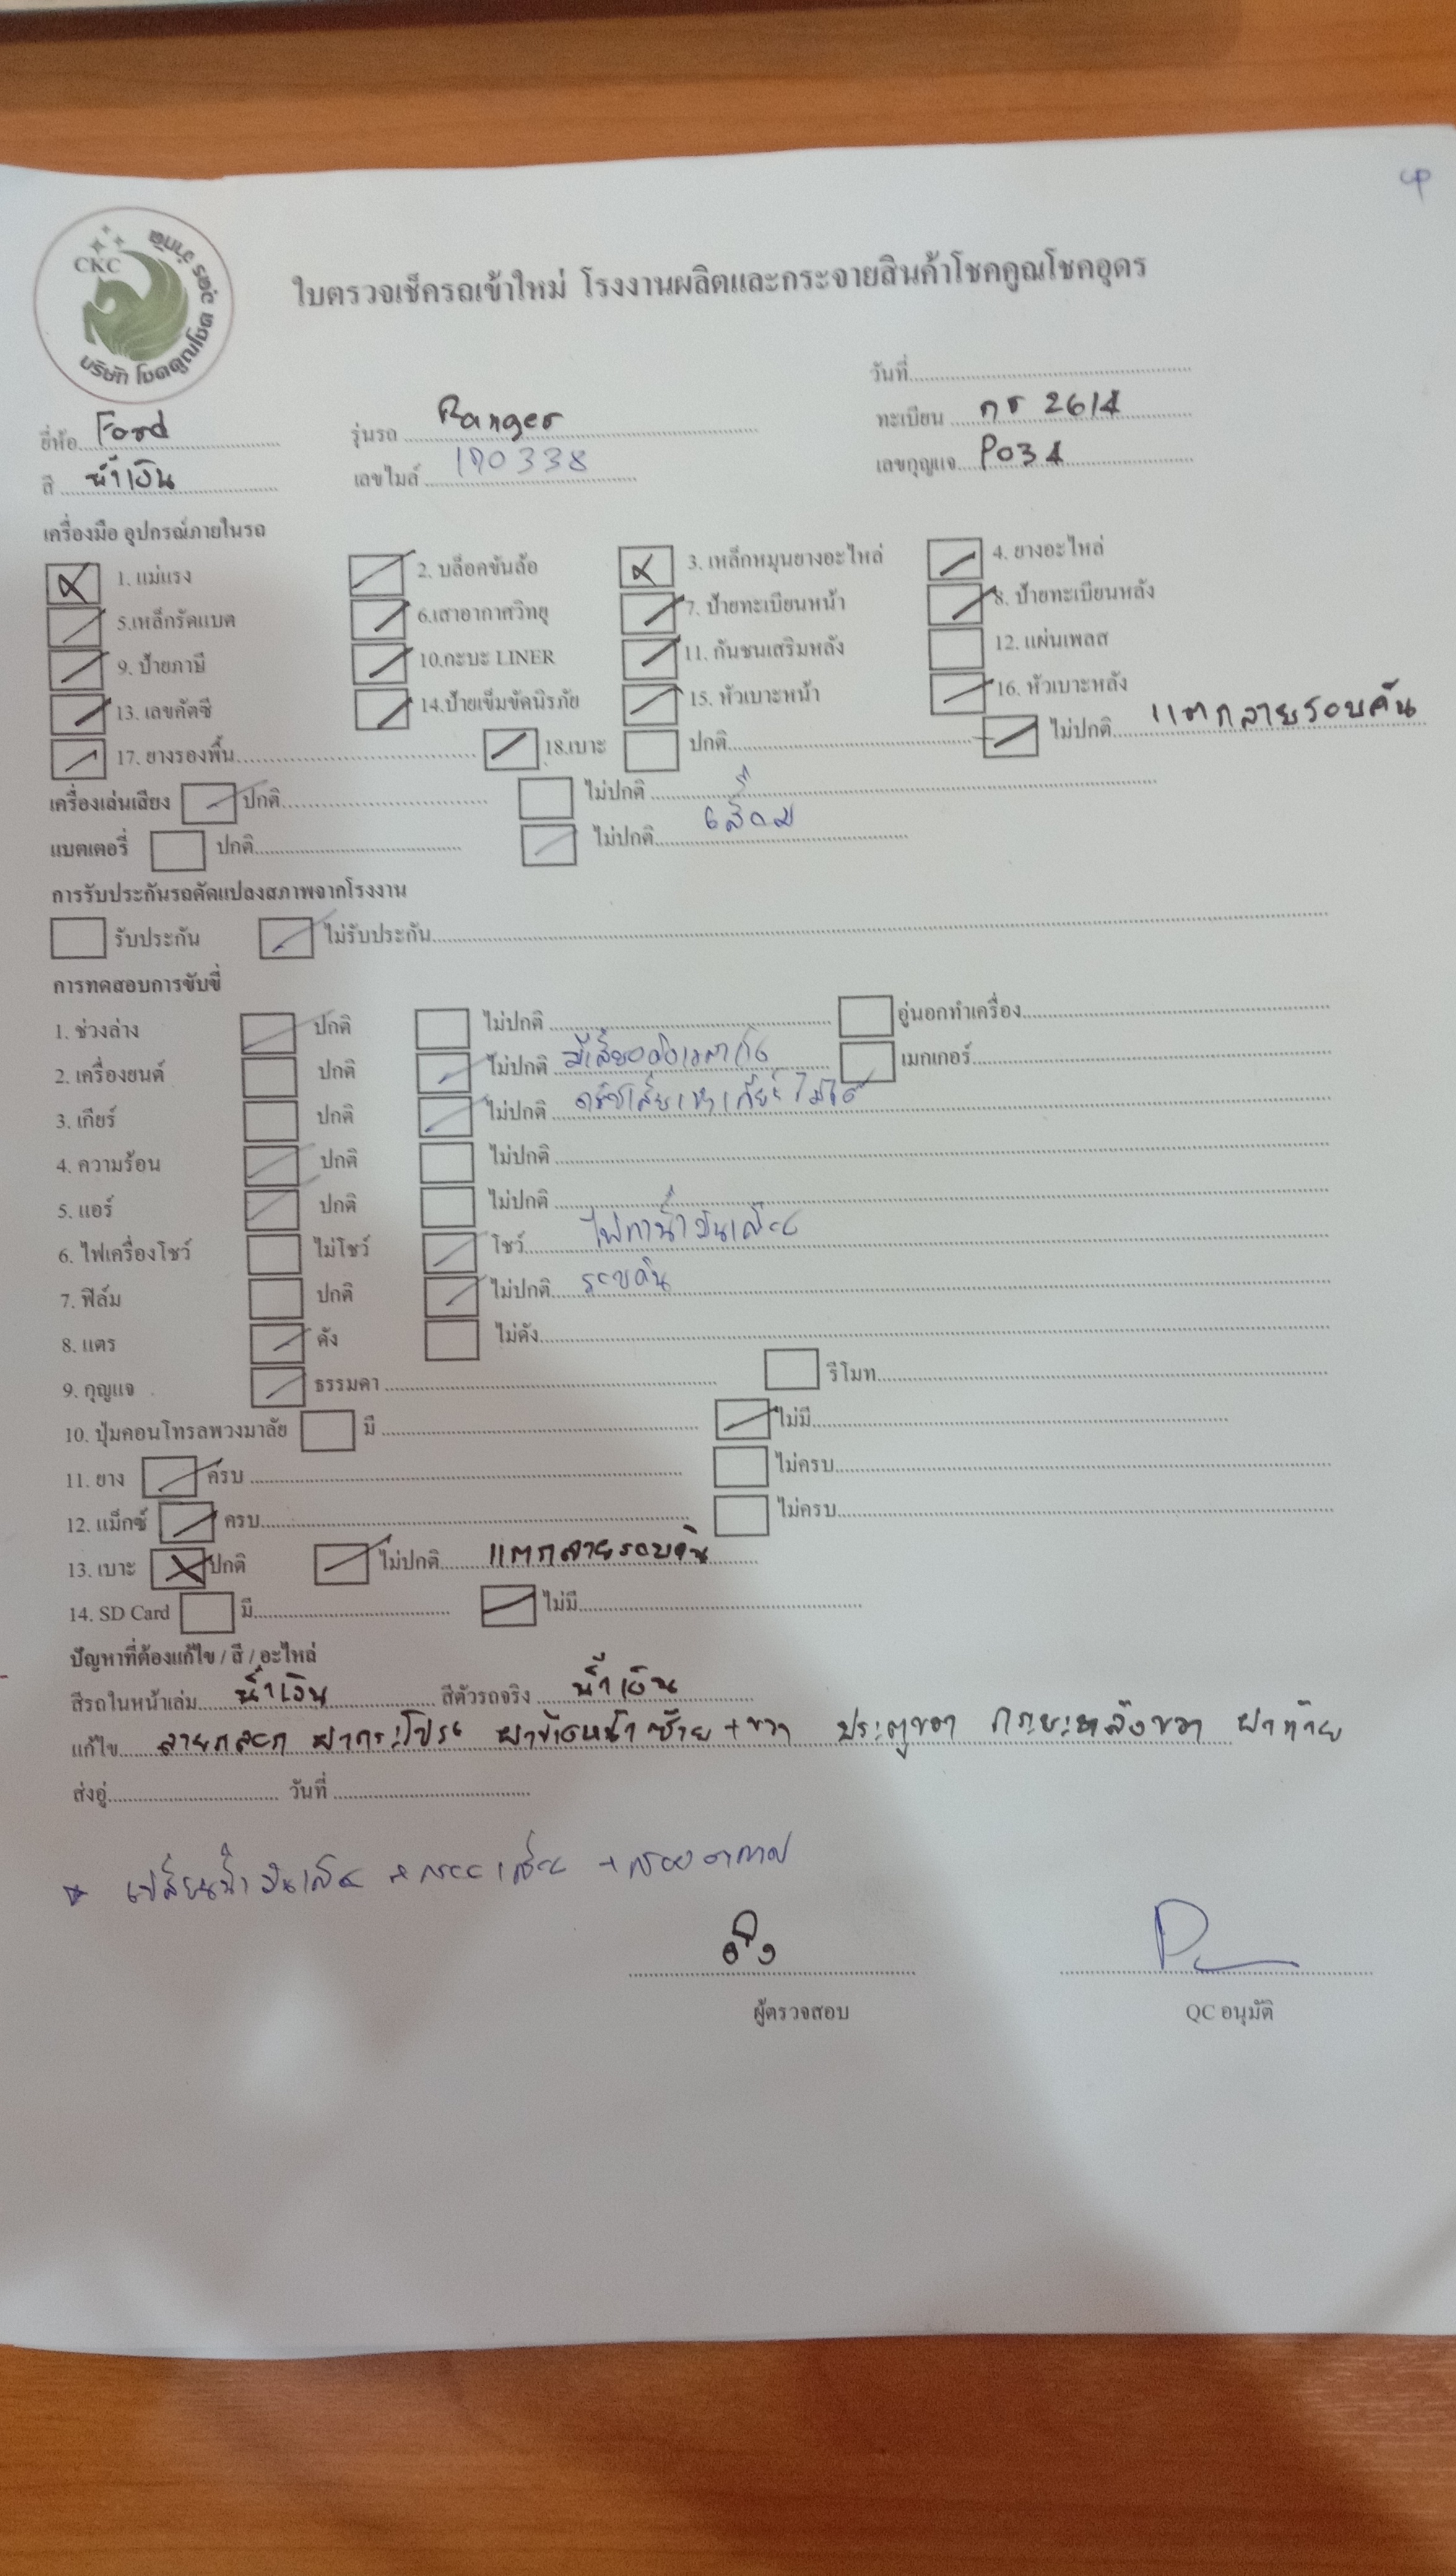 CKC
บริษัท โชคคูณโชค อุดร จำกัด
ใบตรวจเช็ครถเข้าใหม่ โรงงานผลิตและกระจายสินค้าโชคคูณโชคอุดร
วันที่
ยี่ห้อ Ford รุ่นรถ Ranger ทะเบียน กร 2614
สี น้ำเงิน เลขไมล์ 190338 เลขกุญแจ P034
เครื่องมือ อุปกรณ์ภายในรถ
1. แม่แรง 2. บล็อคขันล้อ 3. เหล็กหมุนยางอะไหล่ 4. ยางอะไหล่
5.เหล็กรัดแบต 6.เสาอากาศวิทยุ 7. ป้ายทะเบียนหน้า 8. ป้ายทะเบียนหลัง
9. ป้ายภาษี 10.กะบะ LINER 11. กันชนเสริมหลัง 12. แผ่นเพลส
13. เลขคัตซี 14.ป้ายเข็มขัดนิรภัย 15. หัวเบาะหน้า 16. หัวเบาะหลัง
17. ยางรองพื้น 18.เบาะ ปกติ ไม่ปกติ แตกลายรอบคัน
เครื่องเล่นเสียง ปกติ ไม่ปกติ
แบตเตอรี่ ปกติ ไม่ปกติ เสื่อม
การรับประกันรถดัดแปลงสภาพจากโรงงาน
รับประกัน ไม่รับประกัน
การทดสอบการขับขี่
1. ช่วงล่าง ปกติ ไม่ปกติ อู่นอกทำเครื่อง
2. เครื่องยนต์ ปกติ ไม่ปกติ มีเสียงดัง เมกเกอร์
3. เกียร์ ปกติ ไม่ปกติ เกียร์ ไม่ได้
4. ความร้อน ปกติ ไม่ปกติ
5. แอร์ ปกติ ไม่ปกติ
6. ไฟเครื่องโชว์ ไม่โชว์ โชว์ น้ำมันเครื่อง
7. ฟิล์ม ปกติ ไม่ปกติ รอบคัน
8. แตร ดัง ไม่ดัง
9. กุญแจ ธรรมดา รีโมท
10. ปุ่มคอนโทรลพวงมาลัย มี ไม่มี
11. ยาง ครบ ไม่ครบ
12. แม็กซ์ ครบ ไม่ครบ
13. เบาะ ปกติ ไม่ปกติ แตกลายรอบคัน
14. SD Card มี ไม่มี
ปัญหาที่ต้องแก้ไข / สี / อะไหล่
สีรถในหน้าเล่ม น้ำเงิน สีตัวรถจริง น้ำเงิน
แก้ไข ฝากระโปรง ฝาข้างหน้าซ้าย+ขวา ประตูขวา กระบะหลังขวา ฝาท้าย
ส่งอู่ วันที่
เปลี่ยนน้ำมันเครื่อง + กรองเครื่อง + กรองอากาศ
ผู้ตรวจสอบ QC อนุมัติ